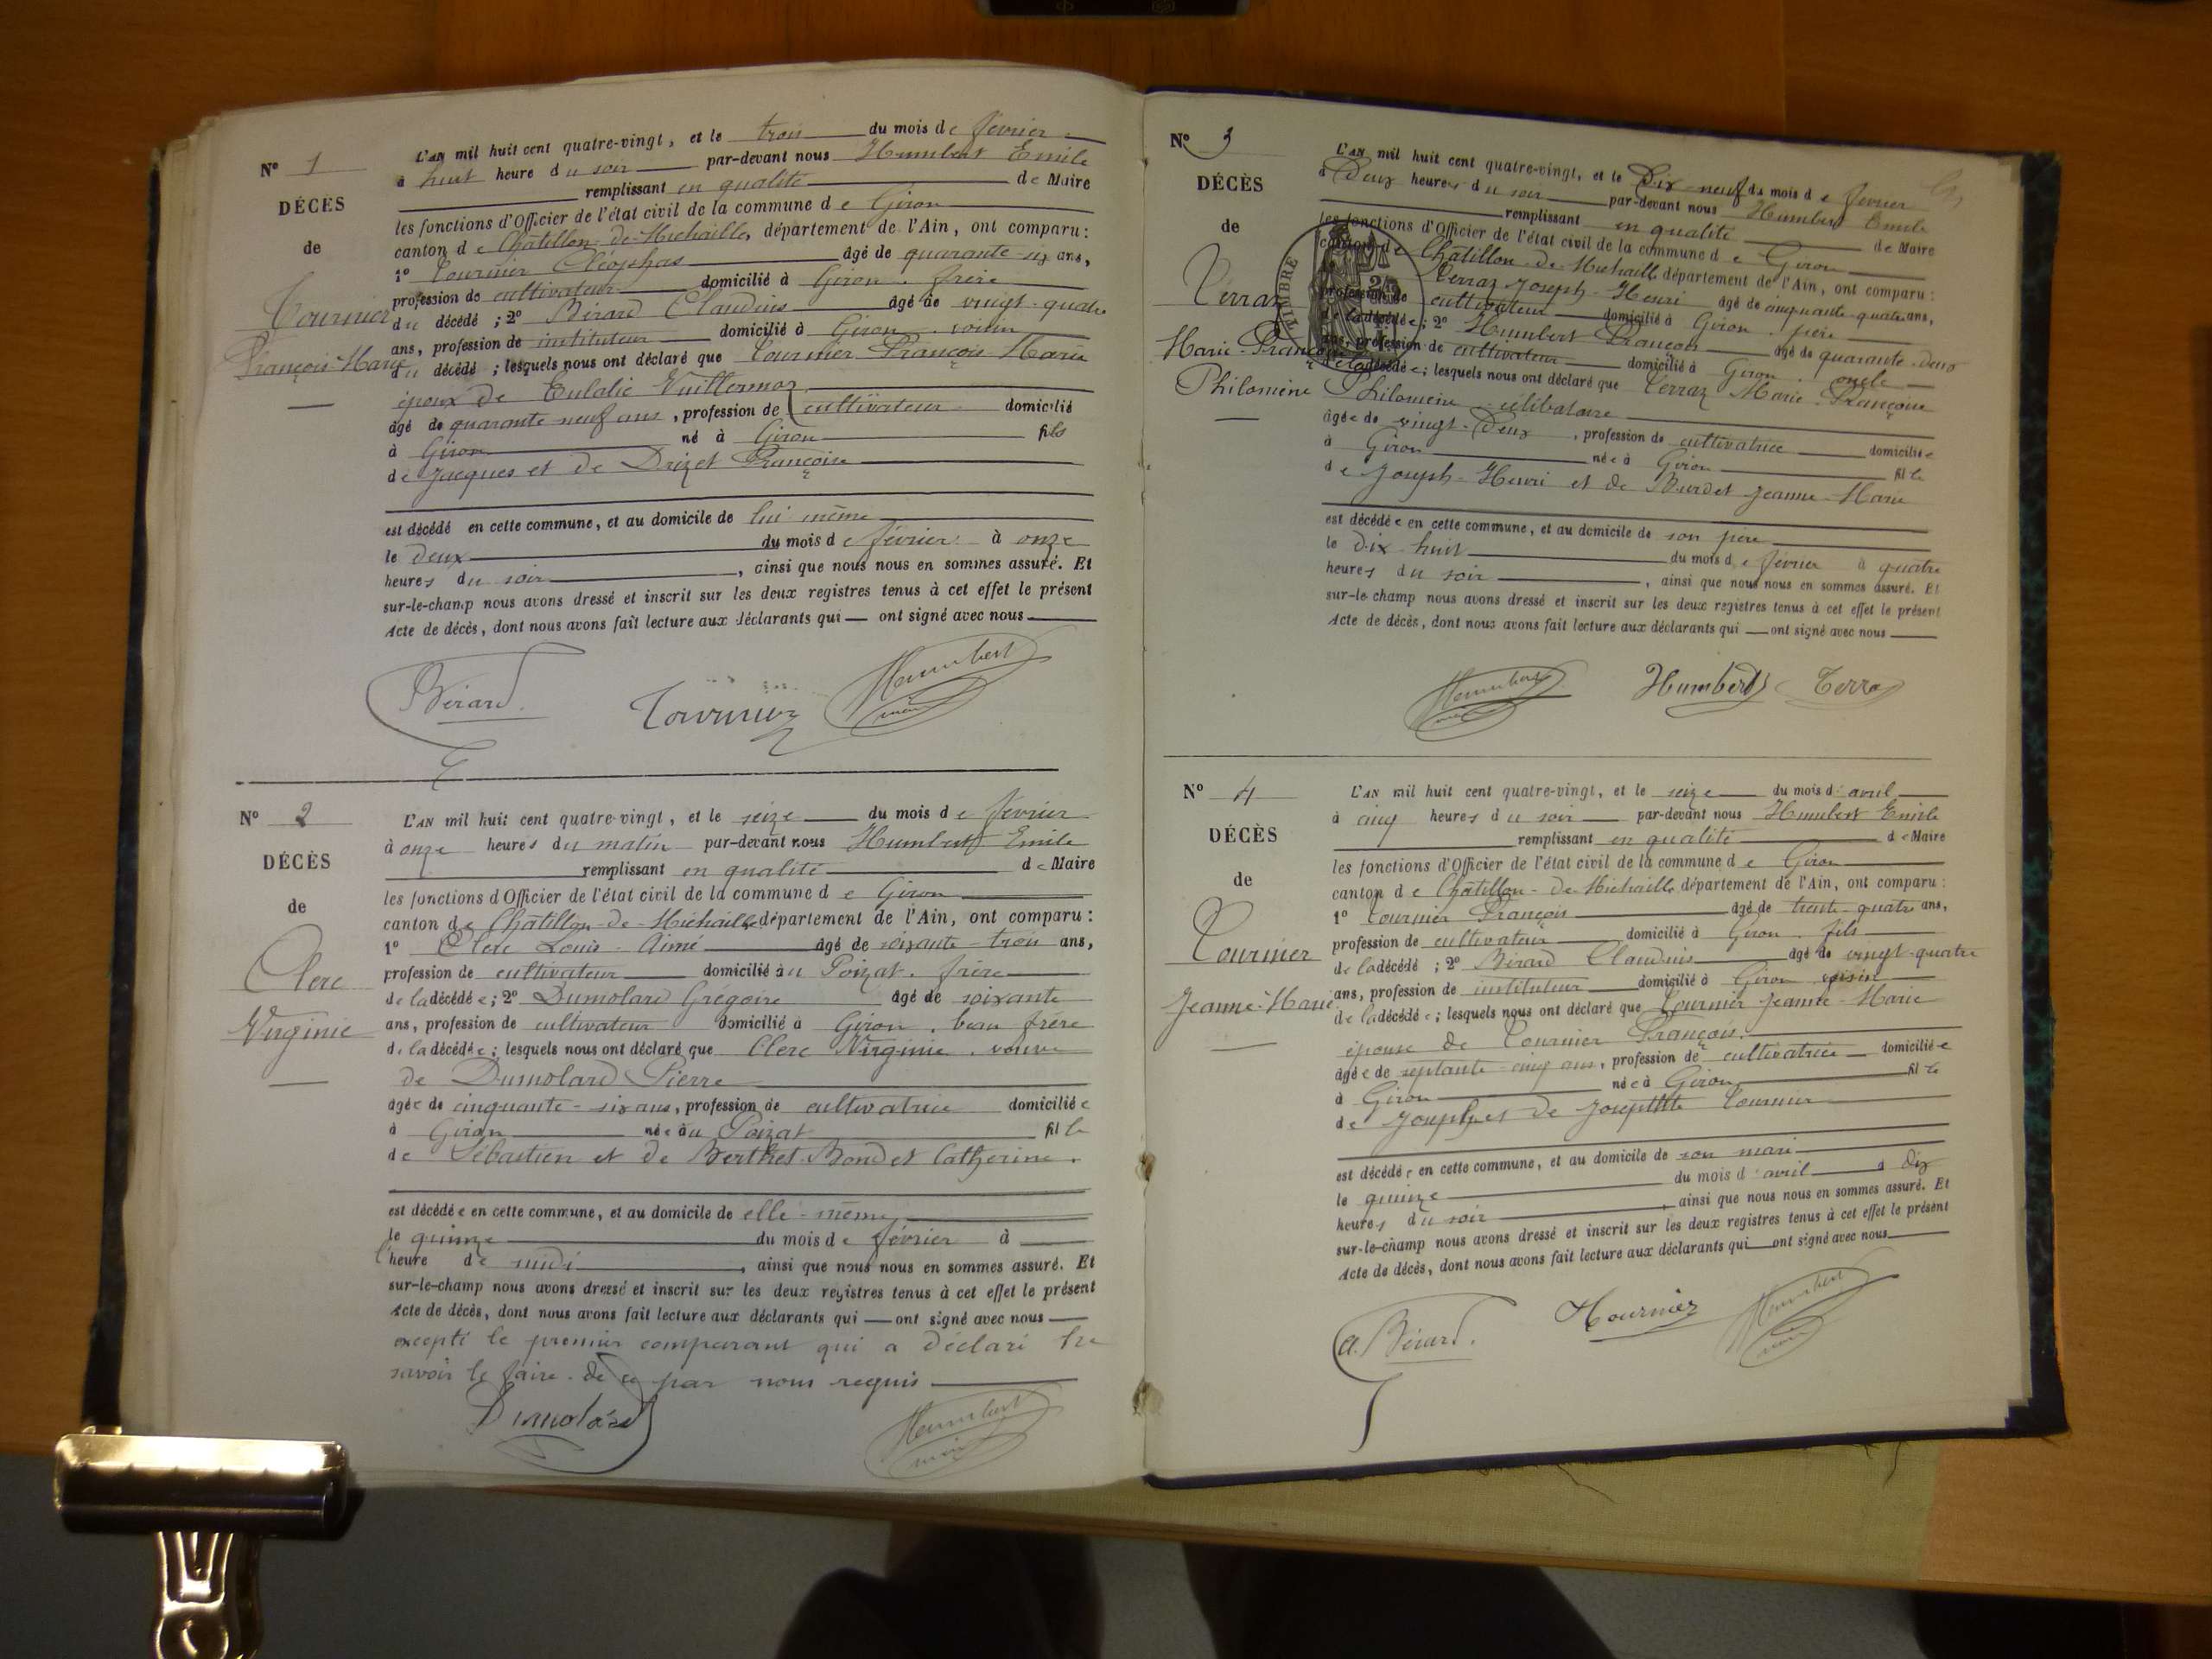 N° 1
DÉCÈS
de
Tournier
François-Marie
L'AN mil huit cent quatre-vingt, et le trois du mois de février
à huit heure du soir par-devant nous Humbert Emile
remplissant en qualité de Maire
les fonctions d'Officier de l'état civil de la commune de Giron
canton de Châtillon-de-Michaille, département de l'Ain, ont comparu:
1° Tournier Cléophas âgé de quarante-six ans,
profession de cultivateur domicilié à Giron, frère
du décédé; 2° Bérard Claudius âgé de vingt-quatre
ans, profession de instituteur domicilié à Giron, voisin
du décédé; lesquels nous ont déclaré que Tournier François Marie
époux de Eulalie Vuillermoz
âgé de quarante neuf ans, profession de cultivateur domicilié
à Giron né à Giron fils
de Jacques et de Drizet Françoise
est décédé en cette commune, et au domicile de lui même
le deux du mois de février à onze
heures du soir, ainsi que nous nous en sommes assuré. Et
sur-le-champ nous avons dressé et inscrit sur les deux registres tenus à cet effet le présent
Acte de décès, dont nous avons fait lecture aux déclarants qui — ont signé avec nous
Bérard Tournier Humbert
maire
N° 2
DÉCÈS
de
Clerc
Virginie
L'AN mil huit cent quatre-vingt, et le seize du mois de février
à onze heures du matin par-devant nous Humbert Emile
remplissant en qualité de Maire
les fonctions d'Officier de l'état civil de la commune de Giron
canton de Châtillon-de-Michaille, département de l'Ain, ont comparu:
1° Clerc Louis-Aimé âgé de soixante-trois ans,
profession de cultivateur domicilié au Poizat, frère
de la décédée; 2° Dumolard Grégoire âgé de soixante
ans, profession de cultivateur domicilié à Giron, beau frère
de la décédée; lesquels nous ont déclaré que Clerc Virginie, veuve
de Dumolard Pierre
âgée de cinquante-six ans, profession de cultivatrice domiciliée
à Giron née au Poizat fille
de Sébastien et de Berthet-Bondet Catherine.
est décédée en cette commune, et au domicile de elle-même
le quinze du mois de février à
l'heure de midi, ainsi que nous nous en sommes assuré. Et
sur-le-champ nous avons dressé et inscrit sur les deux registres tenus à cet effet le présent
Acte de décès, dont nous avons fait lecture aux déclarants qui — ont signé avec nous
excepté le premier comparant qui a déclaré ne
savoir le faire de ce par nous requis
Dumolard Humbert
maire
N° 3
DÉCÈS
de
Terraz
Marie-Françoise
Philomène
TIMBRE
L'AN mil huit cent quatre-vingt, et le Dix-neuf du mois de février
à Deux heures du soir par-devant nous Humbert Emile
remplissant en qualité de Maire
les fonctions d'Officier de l'état civil de la commune de Giron
canton de Châtillon-de-Michaille, département de l'Ain, ont comparu:
Terraz Joseph-Henri âgé de cinquante-quatre ans,
profession de cultivateur domicilié à Giron, père
de la décédée; 2° Humbert François âgé de quarante-deux
ans, profession de cultivateur domicilié à Giron, oncle
de la décédée; lesquels nous ont déclaré que Terraz Marie-Françoise
Philomène célibataire
âgée de vingt-Deux, profession de cultivatrice domiciliée
à Giron née à Giron fille
de Joseph-Henri et de Burdet Jeanne-Marie
est décédée en cette commune, et au domicile de son père
le dix-huit du mois de février à quatre
heures du soir, ainsi que nous nous en sommes assuré. Et
sur-le-champ nous avons dressé et inscrit sur les deux registres tenus à cet effet le présent
Acte de décès, dont nous avons fait lecture aux déclarants qui — ont signé avec nous
Humbert Humbert Terraz
N° 4
DÉCÈS
de
Tournier
Jeanne-Marie
L'AN mil huit cent quatre-vingt, et le seize du mois d'avril
à cinq heures du soir par-devant nous Humbert Emile
remplissant en qualité de Maire
les fonctions d'Officier de l'état civil de la commune de Giron
canton de Châtillon-de-Michaille, département de l'Ain, ont comparu:
1° Tournier François âgé de trente-quatre ans,
profession de cultivateur domicilié à Giron, fils
de la décédé; 2° Bérard Claudius âgé de vingt-quatre
ans, profession de instituteur domicilié à Giron voisin
de la décédée; lesquels nous ont déclaré que Tournier Jeanne-Marie
épouse de Tournier François.
âgée de septante-cinq ans, profession de cultivatrice domiciliée
à Giron née à Giron fille
de Joseph et de Josephte Tournier
est décédée en cette commune, et au domicile de son mari
le quinze du mois d'avril à dix
heures du soir, ainsi que nous nous en sommes assuré. Et
sur-le-champ nous avons dressé et inscrit sur les deux registres tenus à cet effet le présent
Acte de décès, dont nous avons fait lecture aux déclarants qui — ont signé avec nous
Cl. Bérard. Tournier Humbert
maire